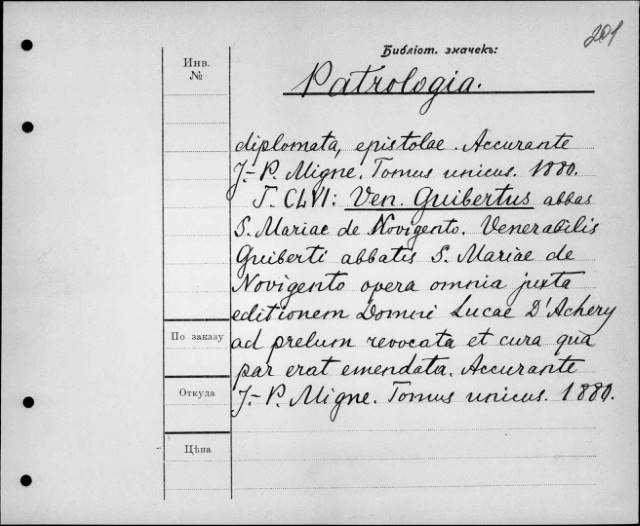 201
Библіот. значекъ:
Инв.
№
Patrologia.
diplomata, epistolae. Accurante
J.-P. Migne. Tomus unicus. 1880.
T. CLVI: Ven. Guibertus abbas
S. Mariae de Novigento. Venerabilis
Guiberti abbatis S. Mariae de
Novigento opera omnia juxta
editionem Domni Lucae D'Achery
По заказу
ad prelum revocata et cura qua
par erat emendata. Accurante
Откуда
J.-P. Migne. Tomus unicus. 1880.
Цѣна